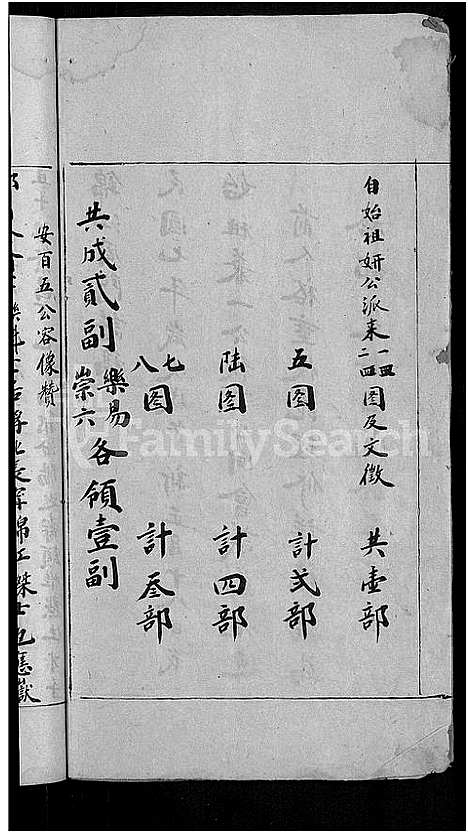 自始祖妍公派來一三二四圖及文徵 共壹部
五圖 計弍部
陸圖 計四部
七八圖 計叄部
共成貳副 樂易崇六各領壹副
安百五公容像贊
FamilySearch